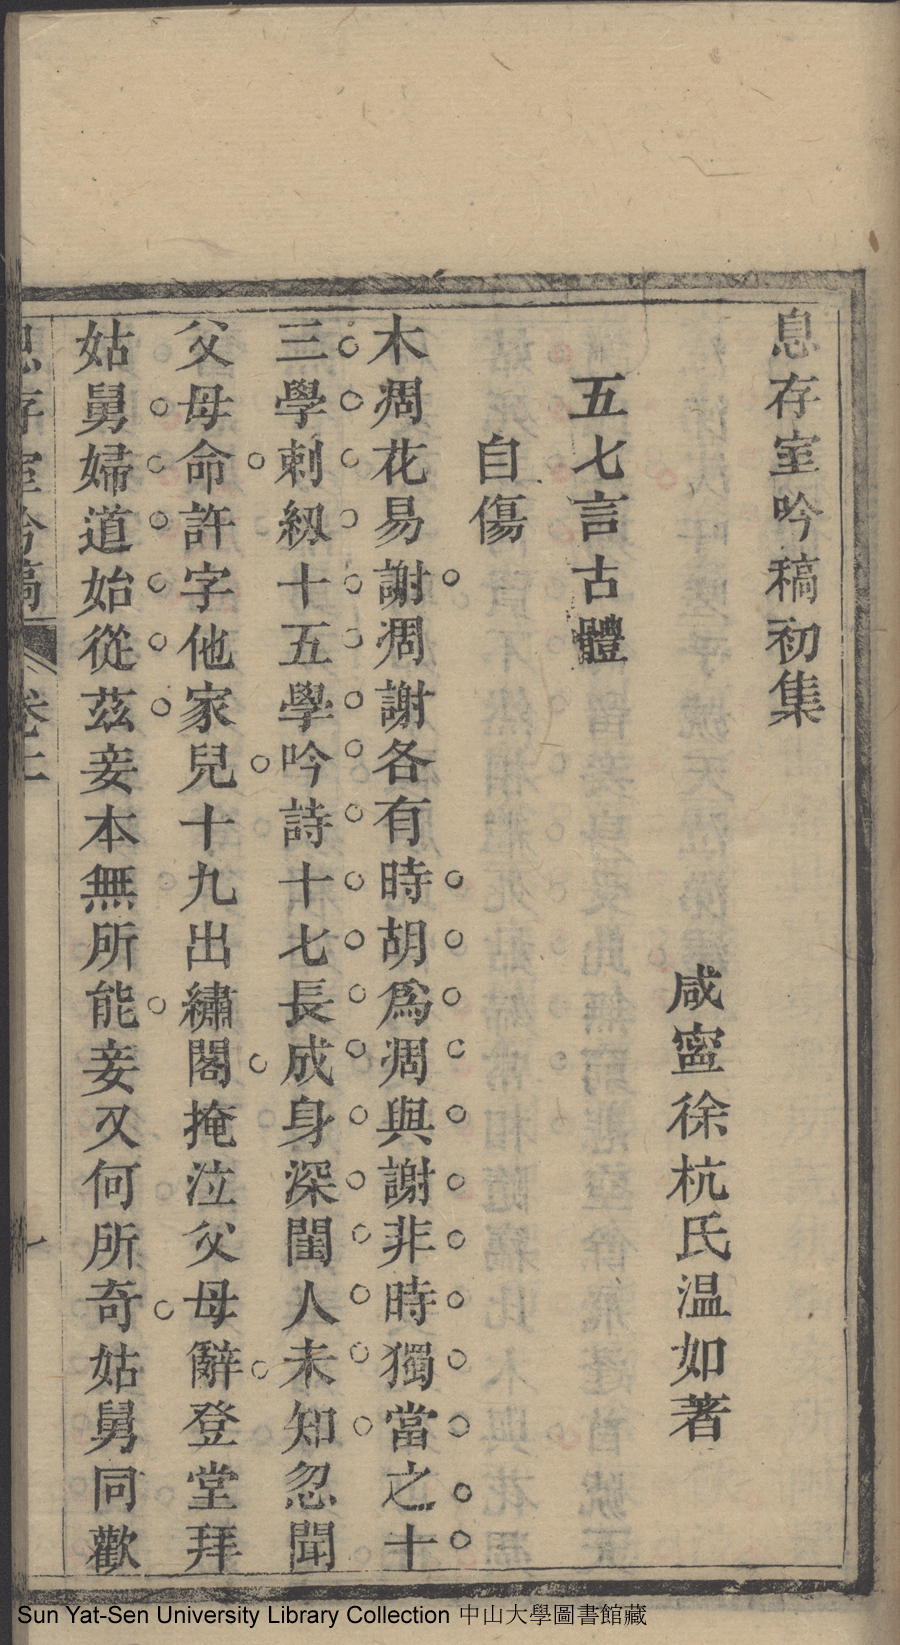 息存室吟稿初集
咸寧徐杭氏温如著
五七言古體
自傷
木凋花易謝凋謝各有時胡爲凋與謝非時獨當之十
三學刺紉十五學吟詩十七長成身深閨人未知忽聞
父母命許字他家兒十九出繡閣掩泣父母辭登堂拜
姑舅婦道始從茲妾本無所能妾又何所奇姑舅同歡
息存室吟稿
卷上
一
Sun Yat-Sen University Library Collection 中山大學圖書館藏